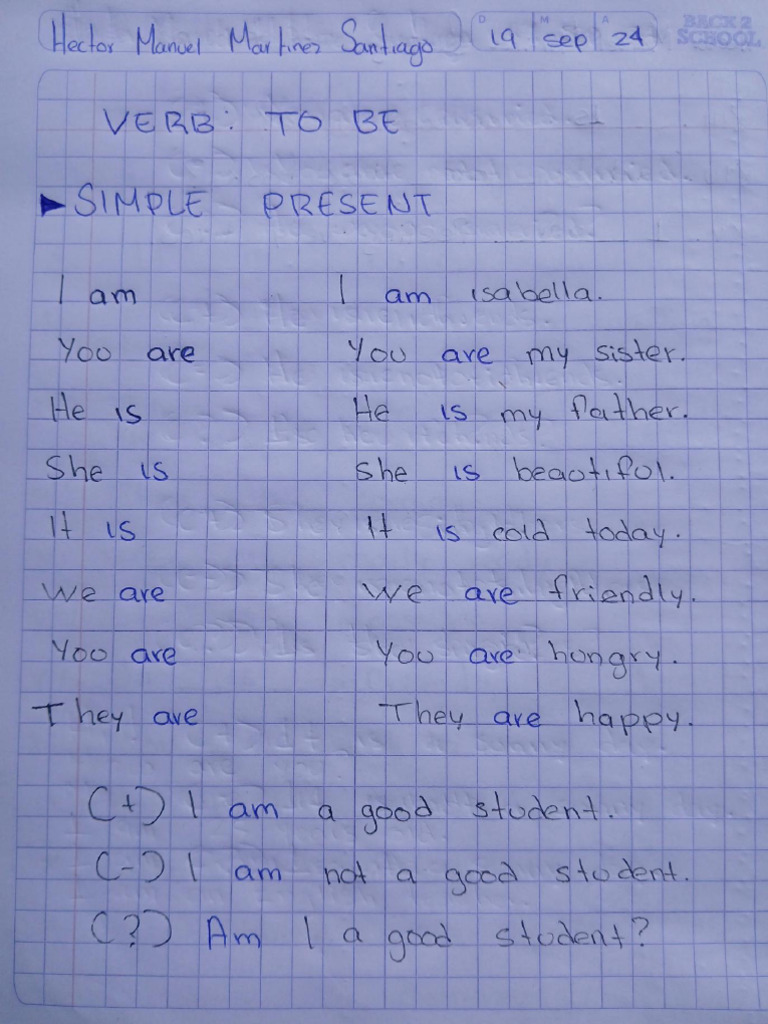 Hector Manuel Martinez Santiago D 19 M sep A 24 BACK 2 SCHOOL
VERB: TO BE
▶ SIMPLE PRESENT
I am I am isabella.
You are You are my sister.
He is He is my father.
She is She is beautiful.
It is It is cold today.
We are We are friendly.
You are You are hungry.
They are They are happy.
(+) I am a good student.
(-) I am not a good student.
(?) Am I a good student?